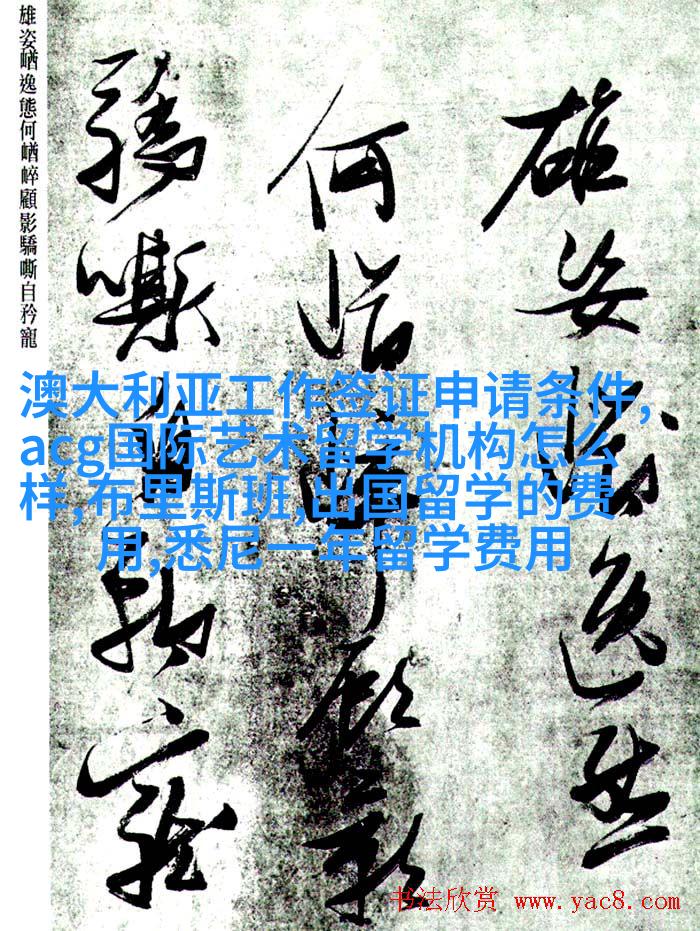 雄姿崷逸態
何崷崪顧影
驕嘶自矜寵
雄姿崷逸態何崷崪顧影驕嘶自矜寵
澳大利亚工作签证申请条件,
acg国际艺术留学机构怎么
样,布里斯班,出国留学的费
用,悉尼一年留学费用
书法欣赏 www.yac8.com